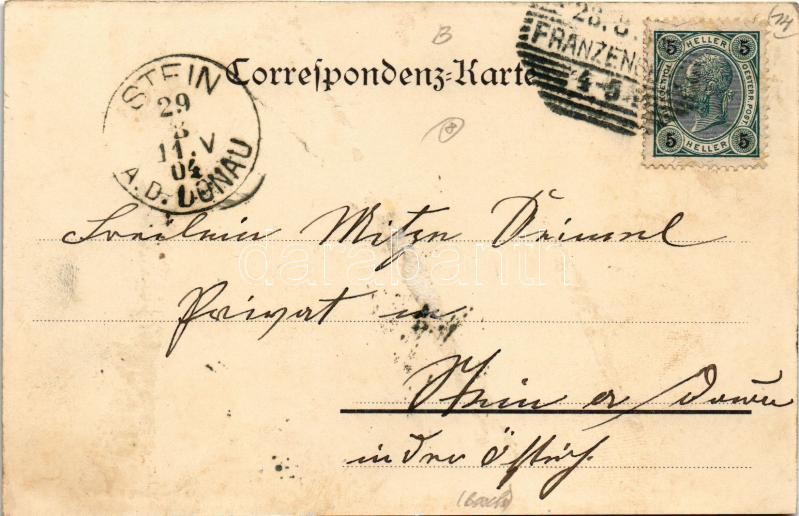 B
14
28. 8.
FRANZENS
4-5
5 HELLER 5
OESTERR. POST
5 HELLER 5
Correspondenz-Karte
STEIN
29
8
11.V
04
A.D. DONAU
8
Fräulein Mitzn
Privat in
Stein a/Donau
in der